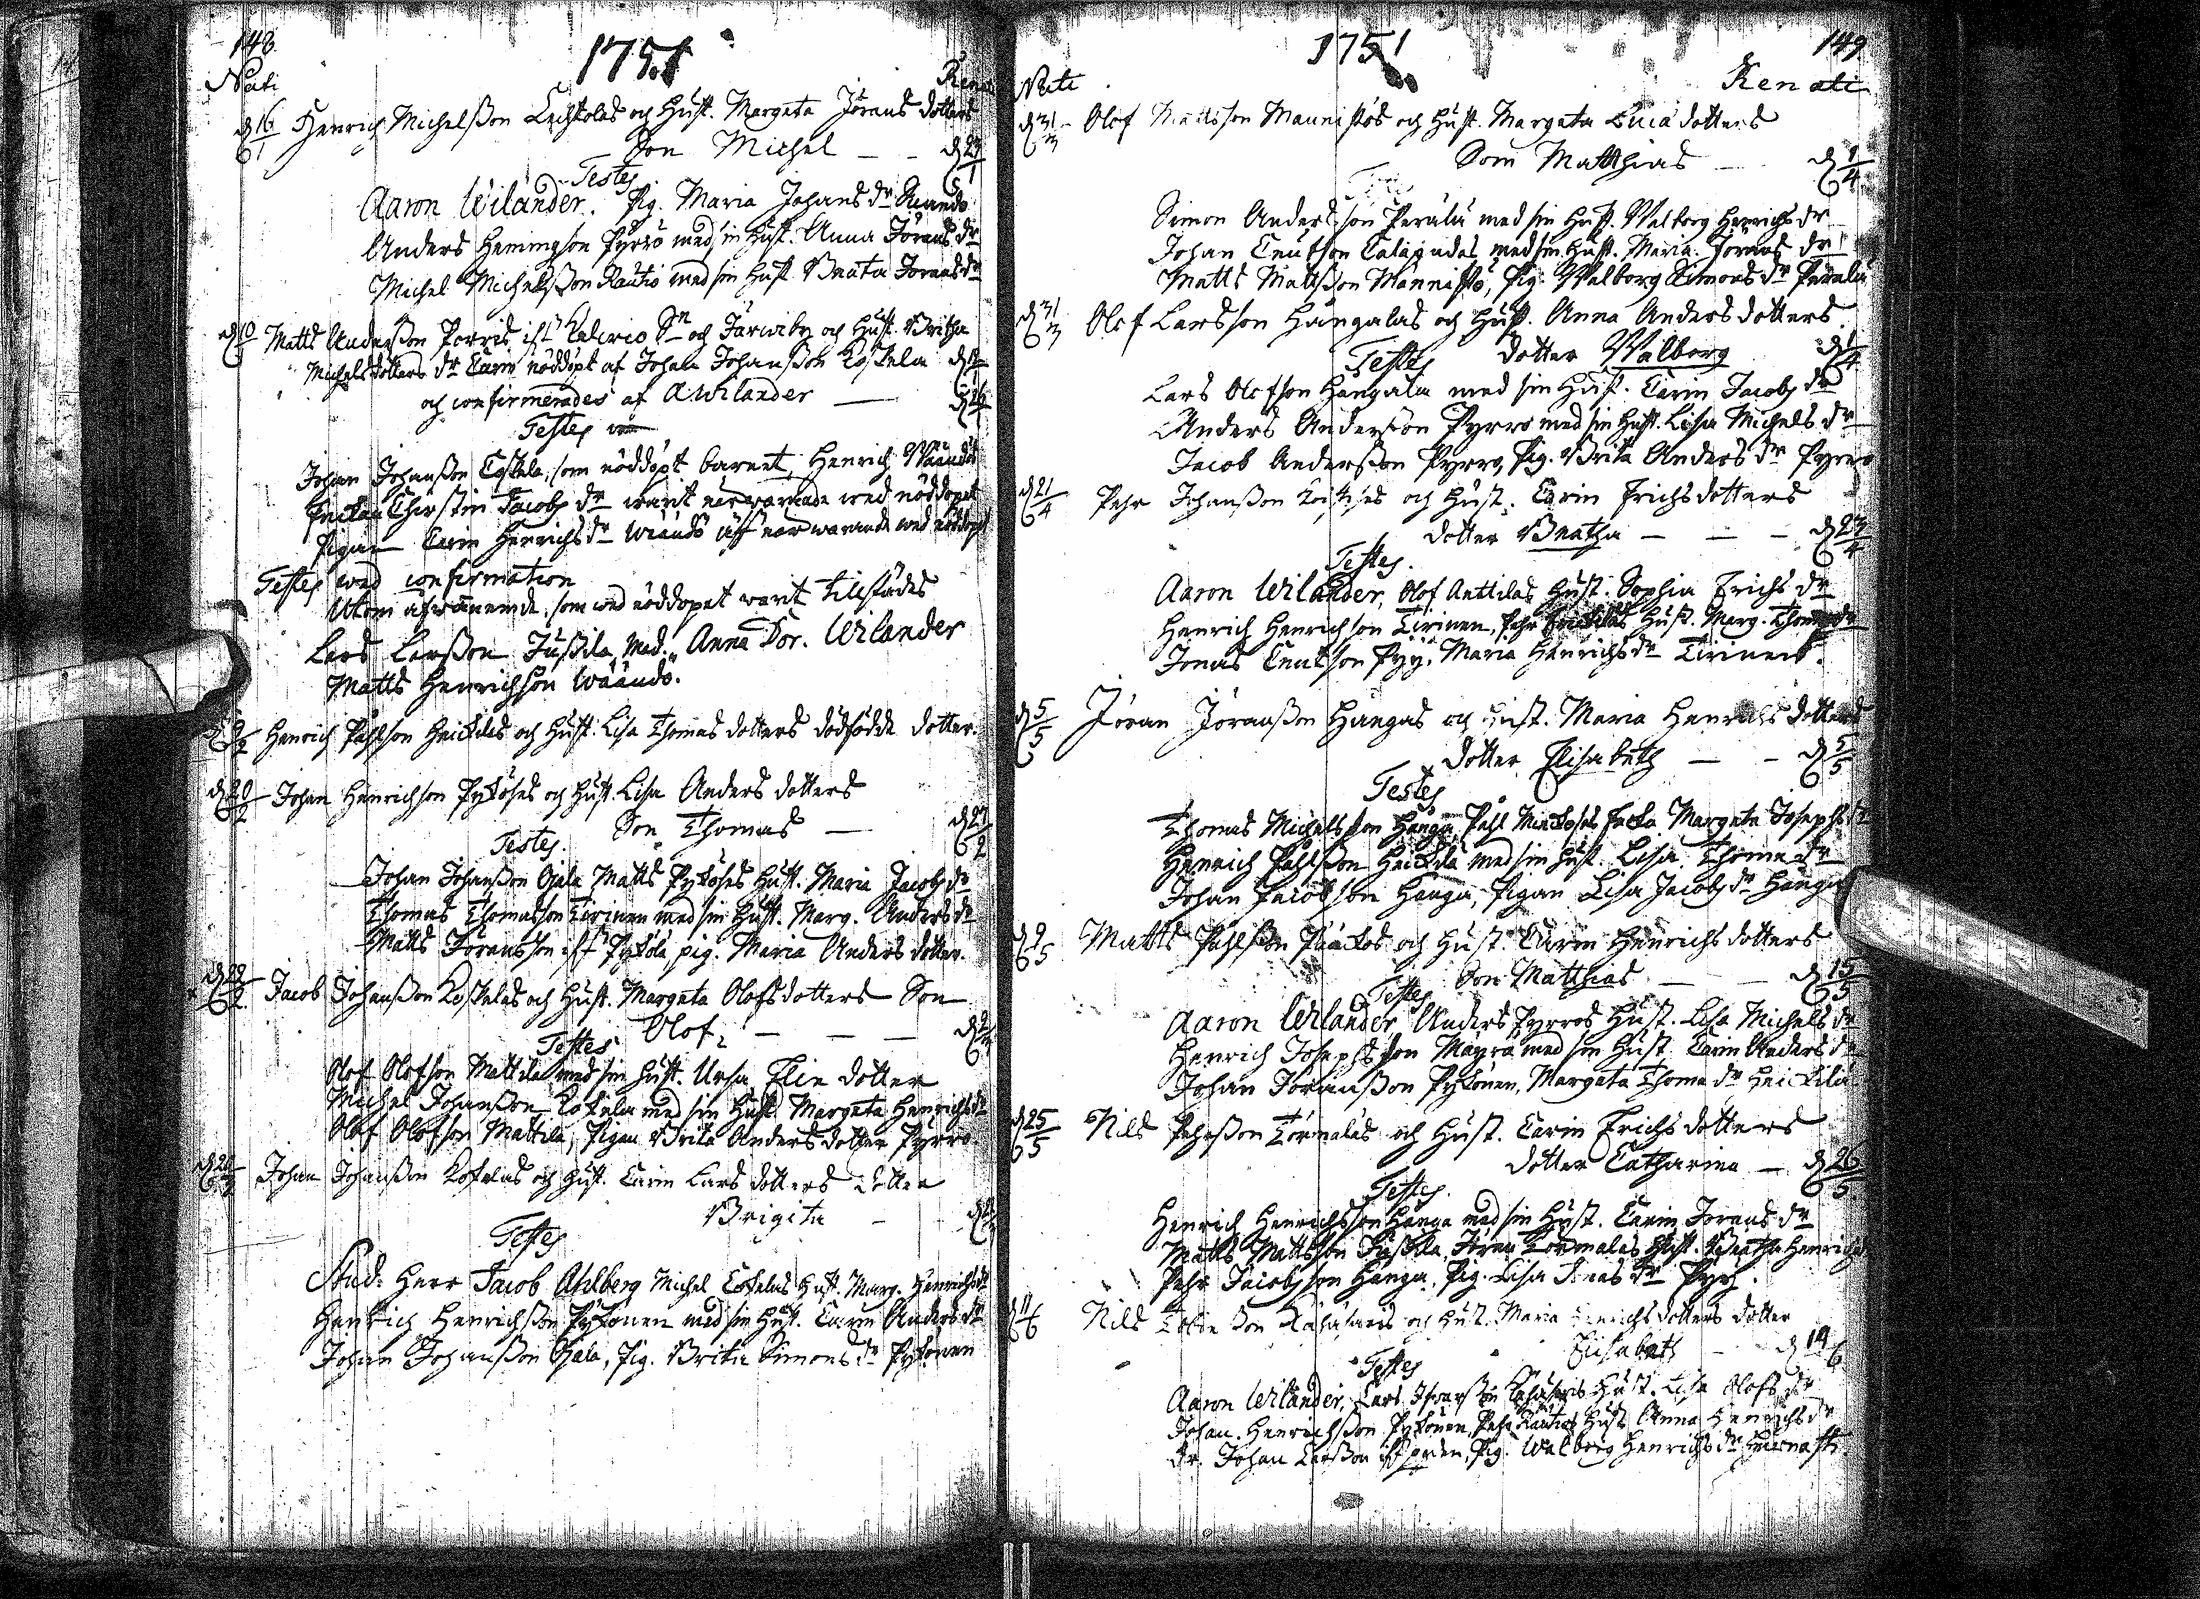 148.
1751
Nati
Renati
d 16/1 Henrich Michelsson Lechtolas och Hust. Margeta Jörans dotters
Son Michel — d 23/1
Testes
Aaron Wilander. Pig. Maria Johans dr
Anders Hemingson Pyrrö med sin Hust. Anna Jörans dr
Michel Michelsson Rautio med sin Hust. Beata Jörans dr
Matts Andersson Porris och Hust. Britha
Michelsdotters dr Carin nöddöpt af Johan Johansson Koskela
och confirmerades af A. Wilander —
Testes
Johan Johansson Coskela, som nöddöpt barnet, Henrich
Enckan Christin Jacobs dr warit närwarande wed nöddopet
Pigan Carin Henrichs dr närwarande wed nöddopet
Testes wed confirmation
Utom som wed nöddopet warit tillstädes
Lars Larsson Jussila, Mad. Anna Dor. Wilander
Matts Henrichson Wäänds.
Henrich Påhlson Heickilas och Hust. Lisa Thomas dotters dödfödde dotter.
d 20/2 Johan Henrichson Pyköses och Hust. Lisa Anders dotters
Son Thomas — d 27/2
Testes.
Johan Johansson Ojala Matts Pyköses Hust. Maria Jacobs dr
Thomas Thomasson Tirinen med sin Hust. Marg. Anders dr
Matts Göransson pig. Maria Anders dotter.
Jacob Johansson Koskelas och Hust. Margeta Olofsdotters Son
Olof. — — —
Testes
Olof Olofson Mattila med sin Hust. Ursa Elie dotter
Michel Johansson Koskela med sin Hust. Margeta Henrichs dr
Olof Olofson Mattila, Pigan Brita Anders dotter Pyrrö
Johan Johansson Koskelas och Hust. Carin Lars dotters dotter
Brigita —
Testes
Stud. Herr Jacob Ahlberg Michel Coskelas Hust. Marg. Henrichs dr
Henrich Henrichsson Pykönen med sin Hust. Carin Anders dr
Johan Johansson Ojala, Pig. Brita Simons dr Pykönen
1751
149.
Nati
Renati
d 31/3 Olof Mattsson Mannistös och Hust. Margeta Luca dotters
Son Matthias — d 1/4
Testes
Simon Andersson Perälä med sin Hust. Walborg Henrichs dr
Johan Cnutson Calajudas med sin Hust. Maria Jörans dr
Matts Mattsson Männistö, Pig. Walborg Simons dr Perälä
d 31/3 Olof Larsson Hangalas och Hust. Anna Anders dotters
dotter Walborg d 1/4
Testes
Lars Olofson Hangala med sin Hust. Carin Jacobs dr
Anders Anderson Pyrrö med sin Hust. Lisa Michels dr
Jacob Andersson Pyrrö, Pig. Brita Anders dr Pyrrö
d 21/4 Pehr Johansson och Hust. Carin Erichsdotters
dotter Beatha — — d 23/4
Testes.
Aaron Wilander, Olof Anttilas Hust. Sophia Erichs dr
Henrich Henrichson Tirinen, Pehr Hust. Marg. Thomæ dr
Jonas Cnutson Pyy, Maria Henrichs dr Tirinen.
d 5/5 Jöran Jöransson Hangas och Hust. Maria Henrichs dotters
dotter Elisabeth — — d 5/5
Testes
Thomas Michelsson Hanga, Påhl Margeta Josephs dr
Henrich Påhlsson Heickilä med sin Hust. Lisa Thomæ dr
Johan Jacobsson Hanga, Pigan Lisa Jacobs dr Hanga
d 9/5 Matts Påhlsson Pääckös och Hust. Carin Henrichsdotters
Son Matthias — d 15/5
Testes
Aaron Wilander Anders Pyrrös Hust. Lisa Michels dr
Henrich Josephsson Mäyrä med sin Hust. Carin Anders dr
Johan Jöransson Pykönen, Margeta Thomæ dr Heickilä
d 25/5 Nils Pehrsson Törmälas och Hust. Carin Erichsdotters
dotter Catharina — d 26/5
Testes.
Henrich Henrichsson Hanga med sin Hust. Carin Jörans dr
Matts Mattsson Jussila, Jöran Törmäläs Hust. Beatha Henrichs
Pehr Jacobsson Hanga, Pig. Lisa Jonas dr Pyy.
d 11/6 Nils och Hust. Maria Henrichsdotters dotter
Elisabeth — d 14/6
Testes
Aaron Wilander, Lars Hust. Lisa Olofs dr
Johan Henrichsson Pykönen, Pehr Rautios Hust. Anna Henrichs dr
Dr. Johan Larsson Pig. Walborg Henrichs dr